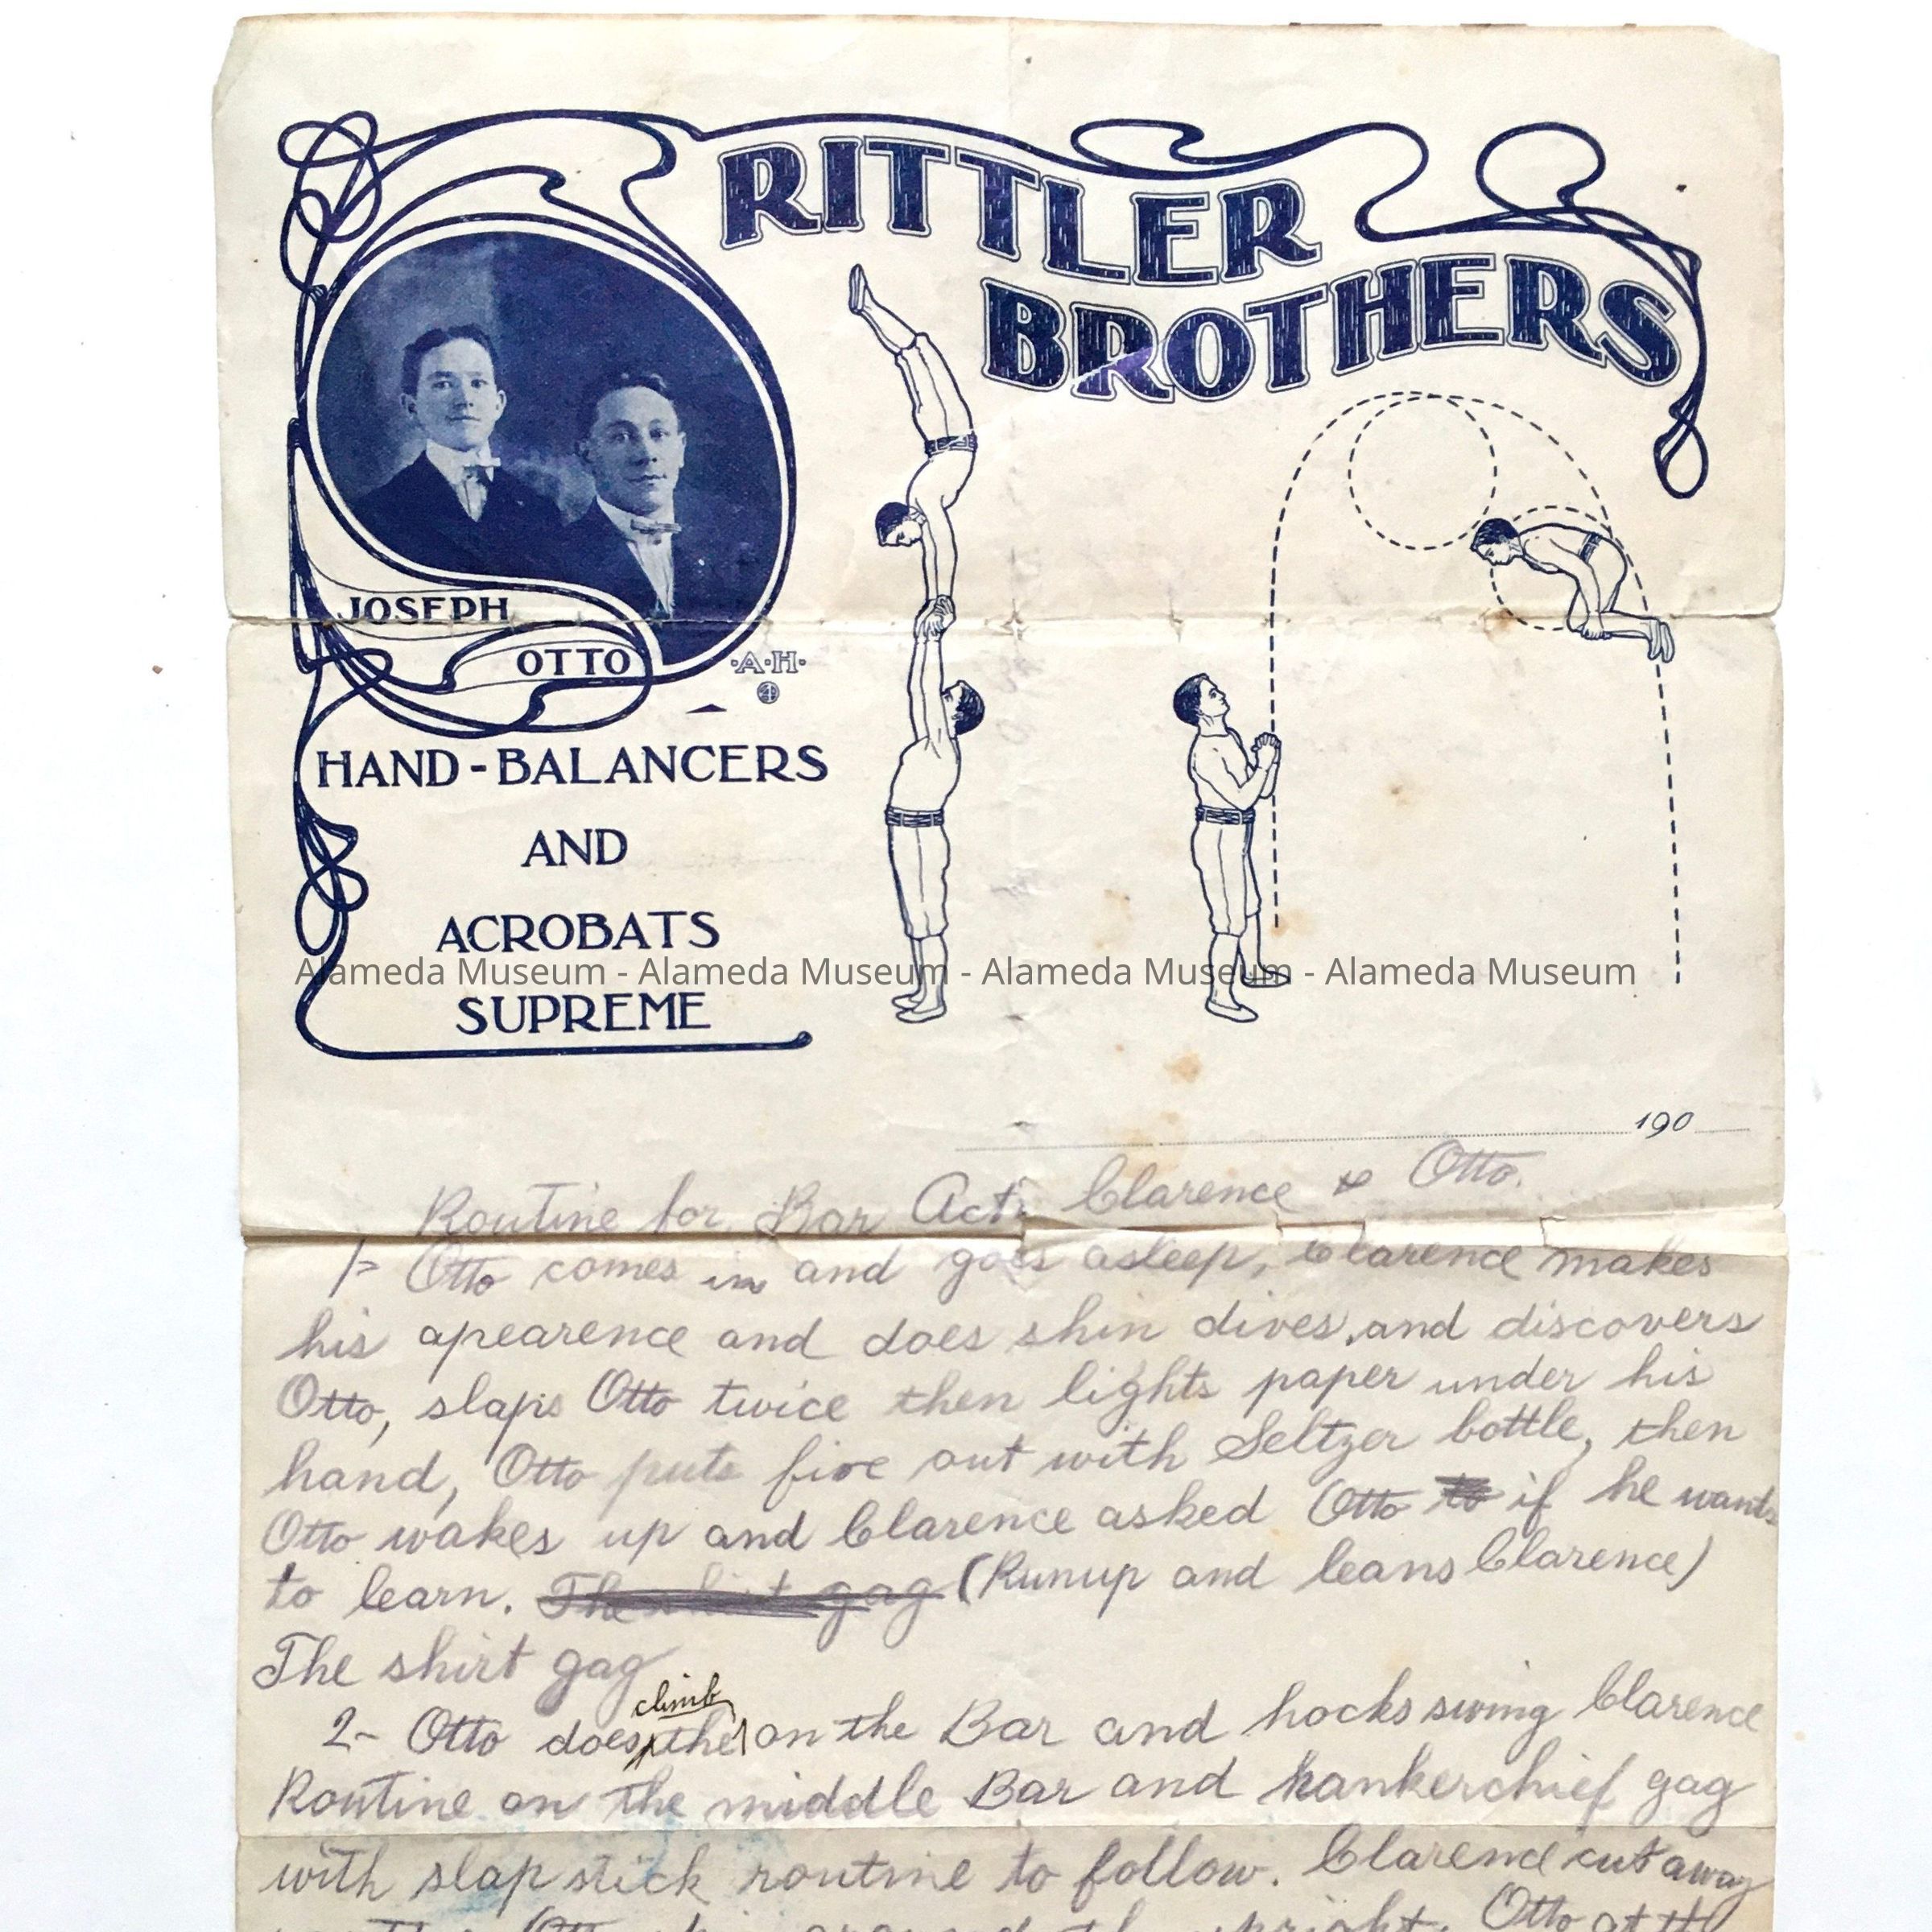 RITTLER
BROTHERS
JOSEPH
OTTO
·A·H·
HAND-BALANCERS
AND
ACROBATS
SUPREME
Alameda Museum - Alameda Museum - Alameda Museum - Alameda Museum
190
Routine for Bar Act. Clarence & Otto.
1- Otto comes in and goes asleep, Clarence makes
his apearence and does shin dives, and discovers
Otto, slaps Otto twice then lights paper under his
hand, Otto puts fire out with Seltzer bottle, then
Otto wakes up and Clarence asked Otto to if he wants
to learn. The shirt gag (Runup and leans Clarence)
The shirt gag
2- Otto does the climb on the Bar and hocks swing Clarence
Routine on the middle Bar and hankerchief gag
with slap stick routine to follow. Clarence cut away
Otto upright. Otto at the